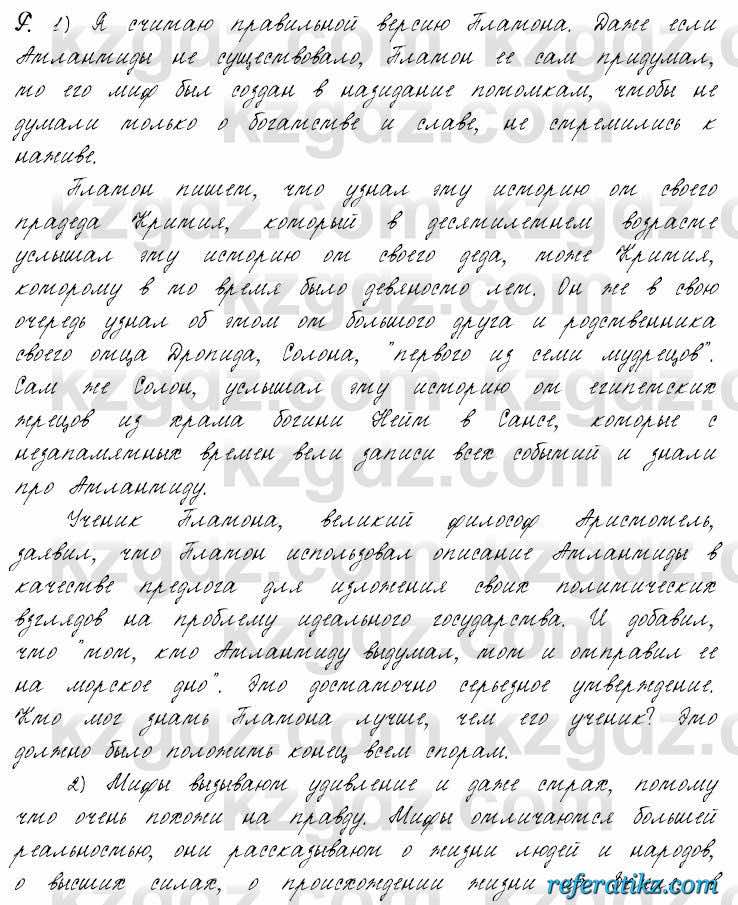 Р. 1) Я считаю правильной версию Платона. Даже если
Атлантиды не существовало, Платон ее сам придумал,
то его миф был создан в назидание потомкам, чтобы не
думали только о богатстве и славе, не стремились к
наживе.
Платон пишет, что узнал эту историю от своего
прадеда Крития, который в десятилетнем возрасте
услышал эту историю от своего деда, тоже Крития,
которому в то время было девяносто лет. Он же в свою
очередь узнал об этом от большого друга и родственника
своего отца Дропида, Солона, "первого из семи мудрецов".
Сам же Солон, услышал эту историю от египетских
жрецов из храма богини Нейт в Саисе, которые с
незапамятных времен вели записи всех событий и знали
про Атлантиду.
Ученик Платона, великий философ Аристотель,
заявил, что Платон использовал описание Атлантиды в
качестве предлога для изложения своих политических
взглядов на проблему идеального государства. И добавил,
что "тот, кто Атлантиду выдумал, тот и отправил ее
на морское дно". Это достаточно серьезное утверждение.
Кто мог знать Платона лучше, чем его ученик? Это
должно было положить конец всем спорам.
2) Мифы вызывают удивление и даже страх, потому
что очень похожи на правду. Мифы отличаются большей
реальностью, они рассказывают о жизни людей и народов,
о высших силах, о происхождении жизни на Земле. в
kzgdz.com
referatikz.com